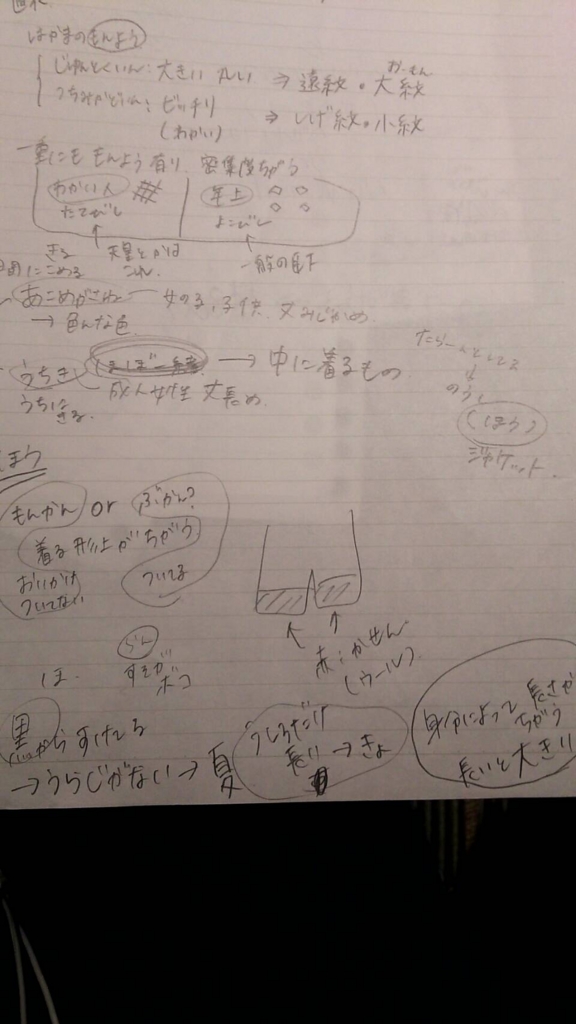 はかまのもんよう
じゅんとくいん:大きい 丸い ⇒ 遠紋・大紋
ピッチリ
(わかい) ⇒ しげ紋・小紋
一重にも もんよう有り、密集度ちがう
わかい人
たてびし
年上
よこびし
きる
天皇とかは
一般の臣下
こめる
女の子、子供、丈みじかめ
→ 色んな色
うちき
→ 中に着るもの
うちに
きる
成人女性 丈長め
のうし
(ほう)
ジャケット
ほう
もんかん or ぶかん?
着る形上がちがう
おいかけ
ついてない
ついてる
赤:かせん
(ウール)
らん
すそが
ボコ
ほ
黒
すけてる
→うらじがない→夏
うしろだけ
長い→きょ
身分によって長さが
ちがう
長いと大きい